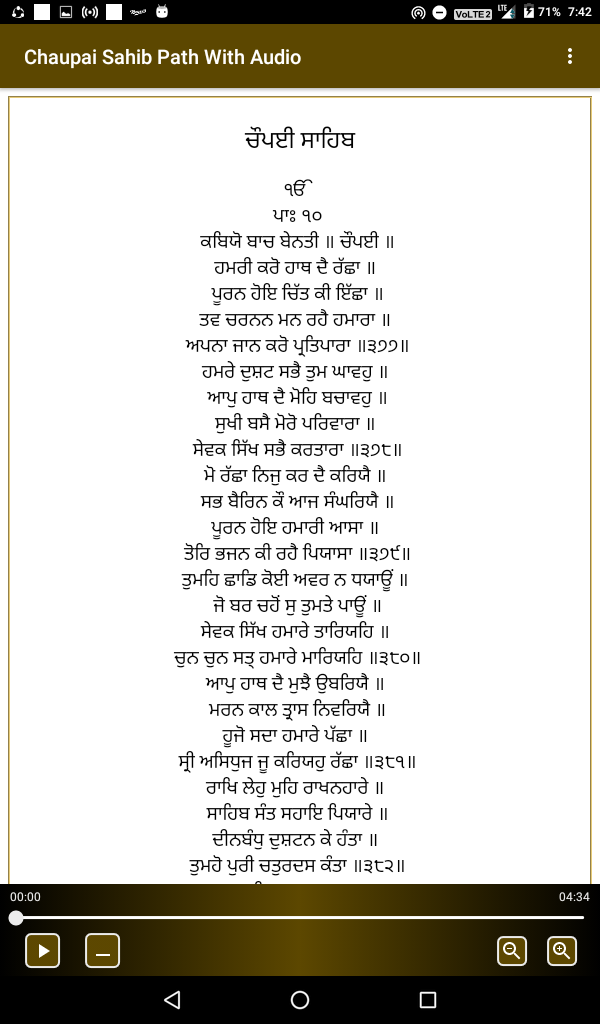 VoLTE 2 LTE 71% 7:42
Chaupai Sahib Path With Audio
ਚੌਪਈ ਸਾਹਿਬ
ੴ
ਪਾਃ ੧੦
ਕਬਿਯੋ ਬਾਚ ਬੇਨਤੀ ॥ ਚੌਪਈ ॥
ਹਮਰੀ ਕਰੋ ਹਾਥ ਦੈ ਰੱਛਾ ॥
ਪੂਰਨ ਹੋਇ ਚਿੱਤ ਕੀ ਇੱਛਾ ॥
ਤਵ ਚਰਨਨ ਮਨ ਰਹੈ ਹਮਾਰਾ ॥
ਅਪਨਾ ਜਾਨ ਕਰੋ ਪ੍ਰਤਿਪਾਰਾ ॥੩੭੭॥
ਹਮਰੇ ਦੁਸ਼ਟ ਸਭੈ ਤੁਮ ਘਾਵਹੁ ॥
ਆਪੁ ਹਾਥ ਦੈ ਮੋਹਿ ਬਚਾਵਹੁ ॥
ਸੁਖੀ ਬਸੈ ਮੋਰੋ ਪਰਿਵਾਰਾ ॥
ਸੇਵਕ ਸਿੱਖ ਸਭੈ ਕਰਤਾਰਾ ॥੩੭੮॥
ਮੋ ਰੱਛਾ ਨਿਜੁ ਕਰ ਦੈ ਕਰਿਯੈ ॥
ਸਭ ਬੈਰਿਨ ਕੌ ਆਜ ਸੰਘਰਿਯੈ ॥
ਪੂਰਨ ਹੋਇ ਹਮਾਰੀ ਆਸਾ ॥
ਤੋਰਿ ਭਜਨ ਕੀ ਰਹੈ ਪਿਯਾਸਾ ॥੩੭੯॥
ਤੁਮਹਿ ਛਾਡਿ ਕੋਈ ਅਵਰ ਨ ਧਯਾਊਂ ॥
ਜੋ ਬਰ ਚਹੋਂ ਸੁ ਤੁਮਤੇ ਪਾਊਂ ॥
ਸੇਵਕ ਸਿੱਖ ਹਮਾਰੇ ਤਾਰਿਯਹਿ ॥
ਚੁਨ ਚੁਨ ਸਤ੍ ਹਮਾਰੇ ਮਾਰਿਯਹਿ ॥੩੮੦॥
ਆਪੁ ਹਾਥ ਦੈ ਮੁਝੈ ਉਬਰਿਯੈ ॥
ਮਰਨ ਕਾਲ ਤ੍ਰਾਸ ਨਿਵਰਿਯੈ ॥
ਹੂਜੋ ਸਦਾ ਹਮਾਰੇ ਪੱਛਾ ॥
ਸ੍ਰੀ ਅਸਿਧੁਜ ਜੂ ਕਰਿਯਹੁ ਰੱਛਾ ॥੩੮੧॥
ਰਾਖਿ ਲੇਹੁ ਮੁਹਿ ਰਾਖਨਹਾਰੇ ॥
ਸਾਹਿਬ ਸੰਤ ਸਹਾਇ ਪਿਯਾਰੇ ॥
ਦੀਨਬੰਧੁ ਦੁਸ਼ਟਨ ਕੇ ਹੰਤਾ ॥
ਤੁਮਹੋ ਪੁਰੀ ਚਤੁਰਦਸ ਕੰਤਾ ॥੩੮੨॥
00:00 04:34